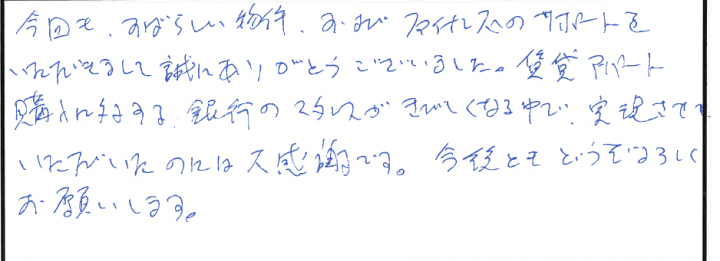 今回も、すばらしい物件、および ファイナンスのサポートを
いただきまして誠にありがとうございました。賃貸アパート
購入に対する、銀行のスタンスがきびしくなる中で、実現させて
いただいたのには大感謝です。今後ともどうぞよろしく
お願いします。